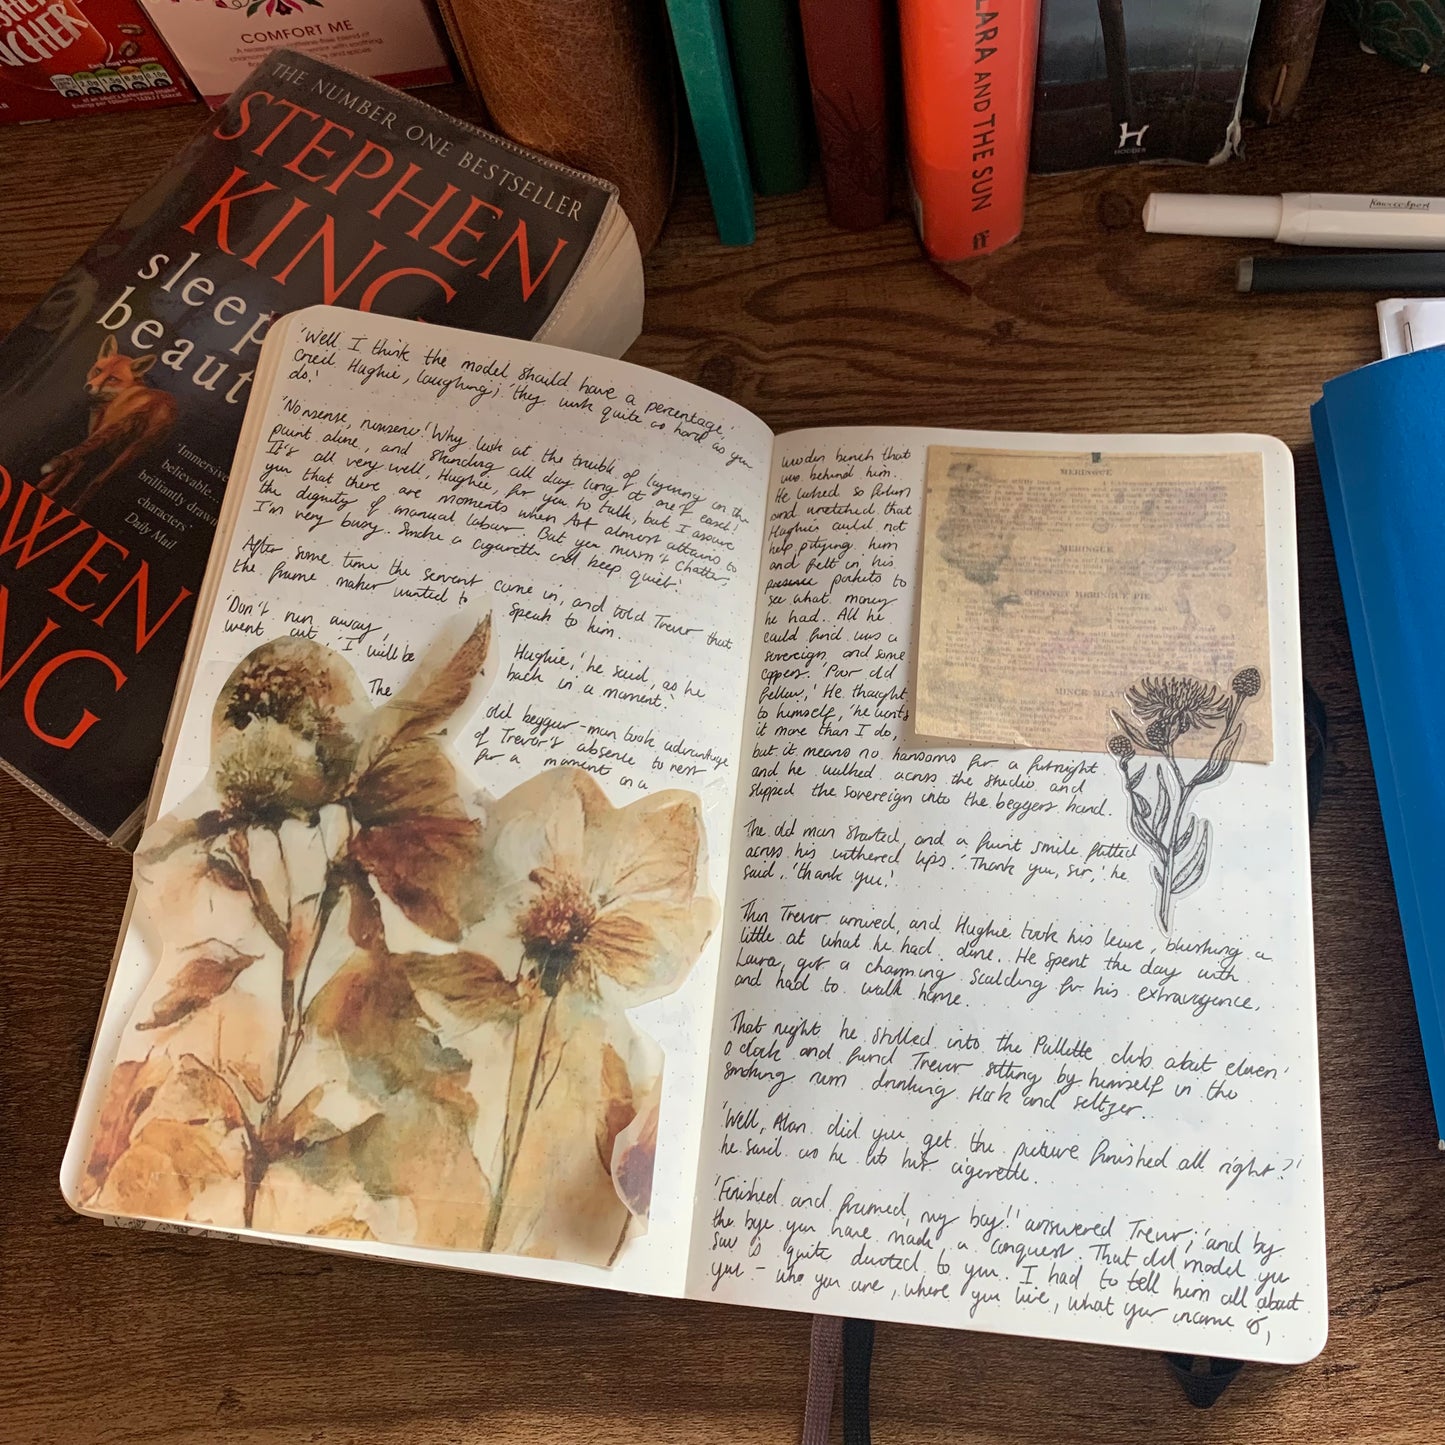 COMFORT ME
THE NUMBER ONE BESTSELLER
STEPHEN
KING
sleep
beaut
'Immersive
believable...
brilliantly drawn
characters'
Daily Mail
OWEN
NG
LARA AND THE SUN
ff
H
HODDER
Kaweco Sport
'Well I think the model should have a percentage,'
cried Hughie, laughing; 'they work quite as hard as you
do.'
'Nonsense, nonsense! Why look at the trouble of laying on the
paint alone, and standing all day long at one's easel!
It's all very well, Hughie, for you to talk, but I assure
you that there are moments when Art almost attains to
the dignity of manual labour. But you mustn't chatter;
I'm very busy. Smoke a cigarette and keep quiet.'
After some time the servant came in, and told Trevor that
the frame maker wanted to speak to him.
'Don't run away, Hughie,' he said, as he
went out, 'I will be back in a moment.'
The old beggar-man took advantage
of Trevor's absence to rest
for a moment on a
wooden bench that
was behind him.
He looked so forlorn
and wretched that
Hughie could not
help pitying him
and felt in his
pockets to
see what money
he had. All he
could find was a
sovereign and some
coppers. 'Poor old
fellow,' He thought
to himself, 'he wants
it more than I do,
but it means no hansoms for a fortnight
and he walked across the studio and
slipped the sovereign into the beggars hand.
The old man started, and a faint smile flitted
across his withered lips. 'Thank you, sir,' he
said, 'thank you.'
Then Trevor arrived, and Hughie took his leave, blushing a
little at what he had done. He spent the day with
Laura, got a charming scolding for his extravagance,
and had to walk home.
That night he strolled into the Pallette club about eleven
o'clock and found Trevor sitting by himself in the
smoking room drinking Hock and seltzer.
'Well, Alan did you get the picture finished all right?'
he said as he lit his cigarette.
'Finished and framed, my boy!' answered Trevor; 'and by
the bye you have made a conquest. That old model you
saw is quite devoted to you. I had to tell him all about
you - who you are, where you live, what your income is,
MERINGUE
MERINGUE
COCONUT MERINGUE PIE
MINCE MEAT